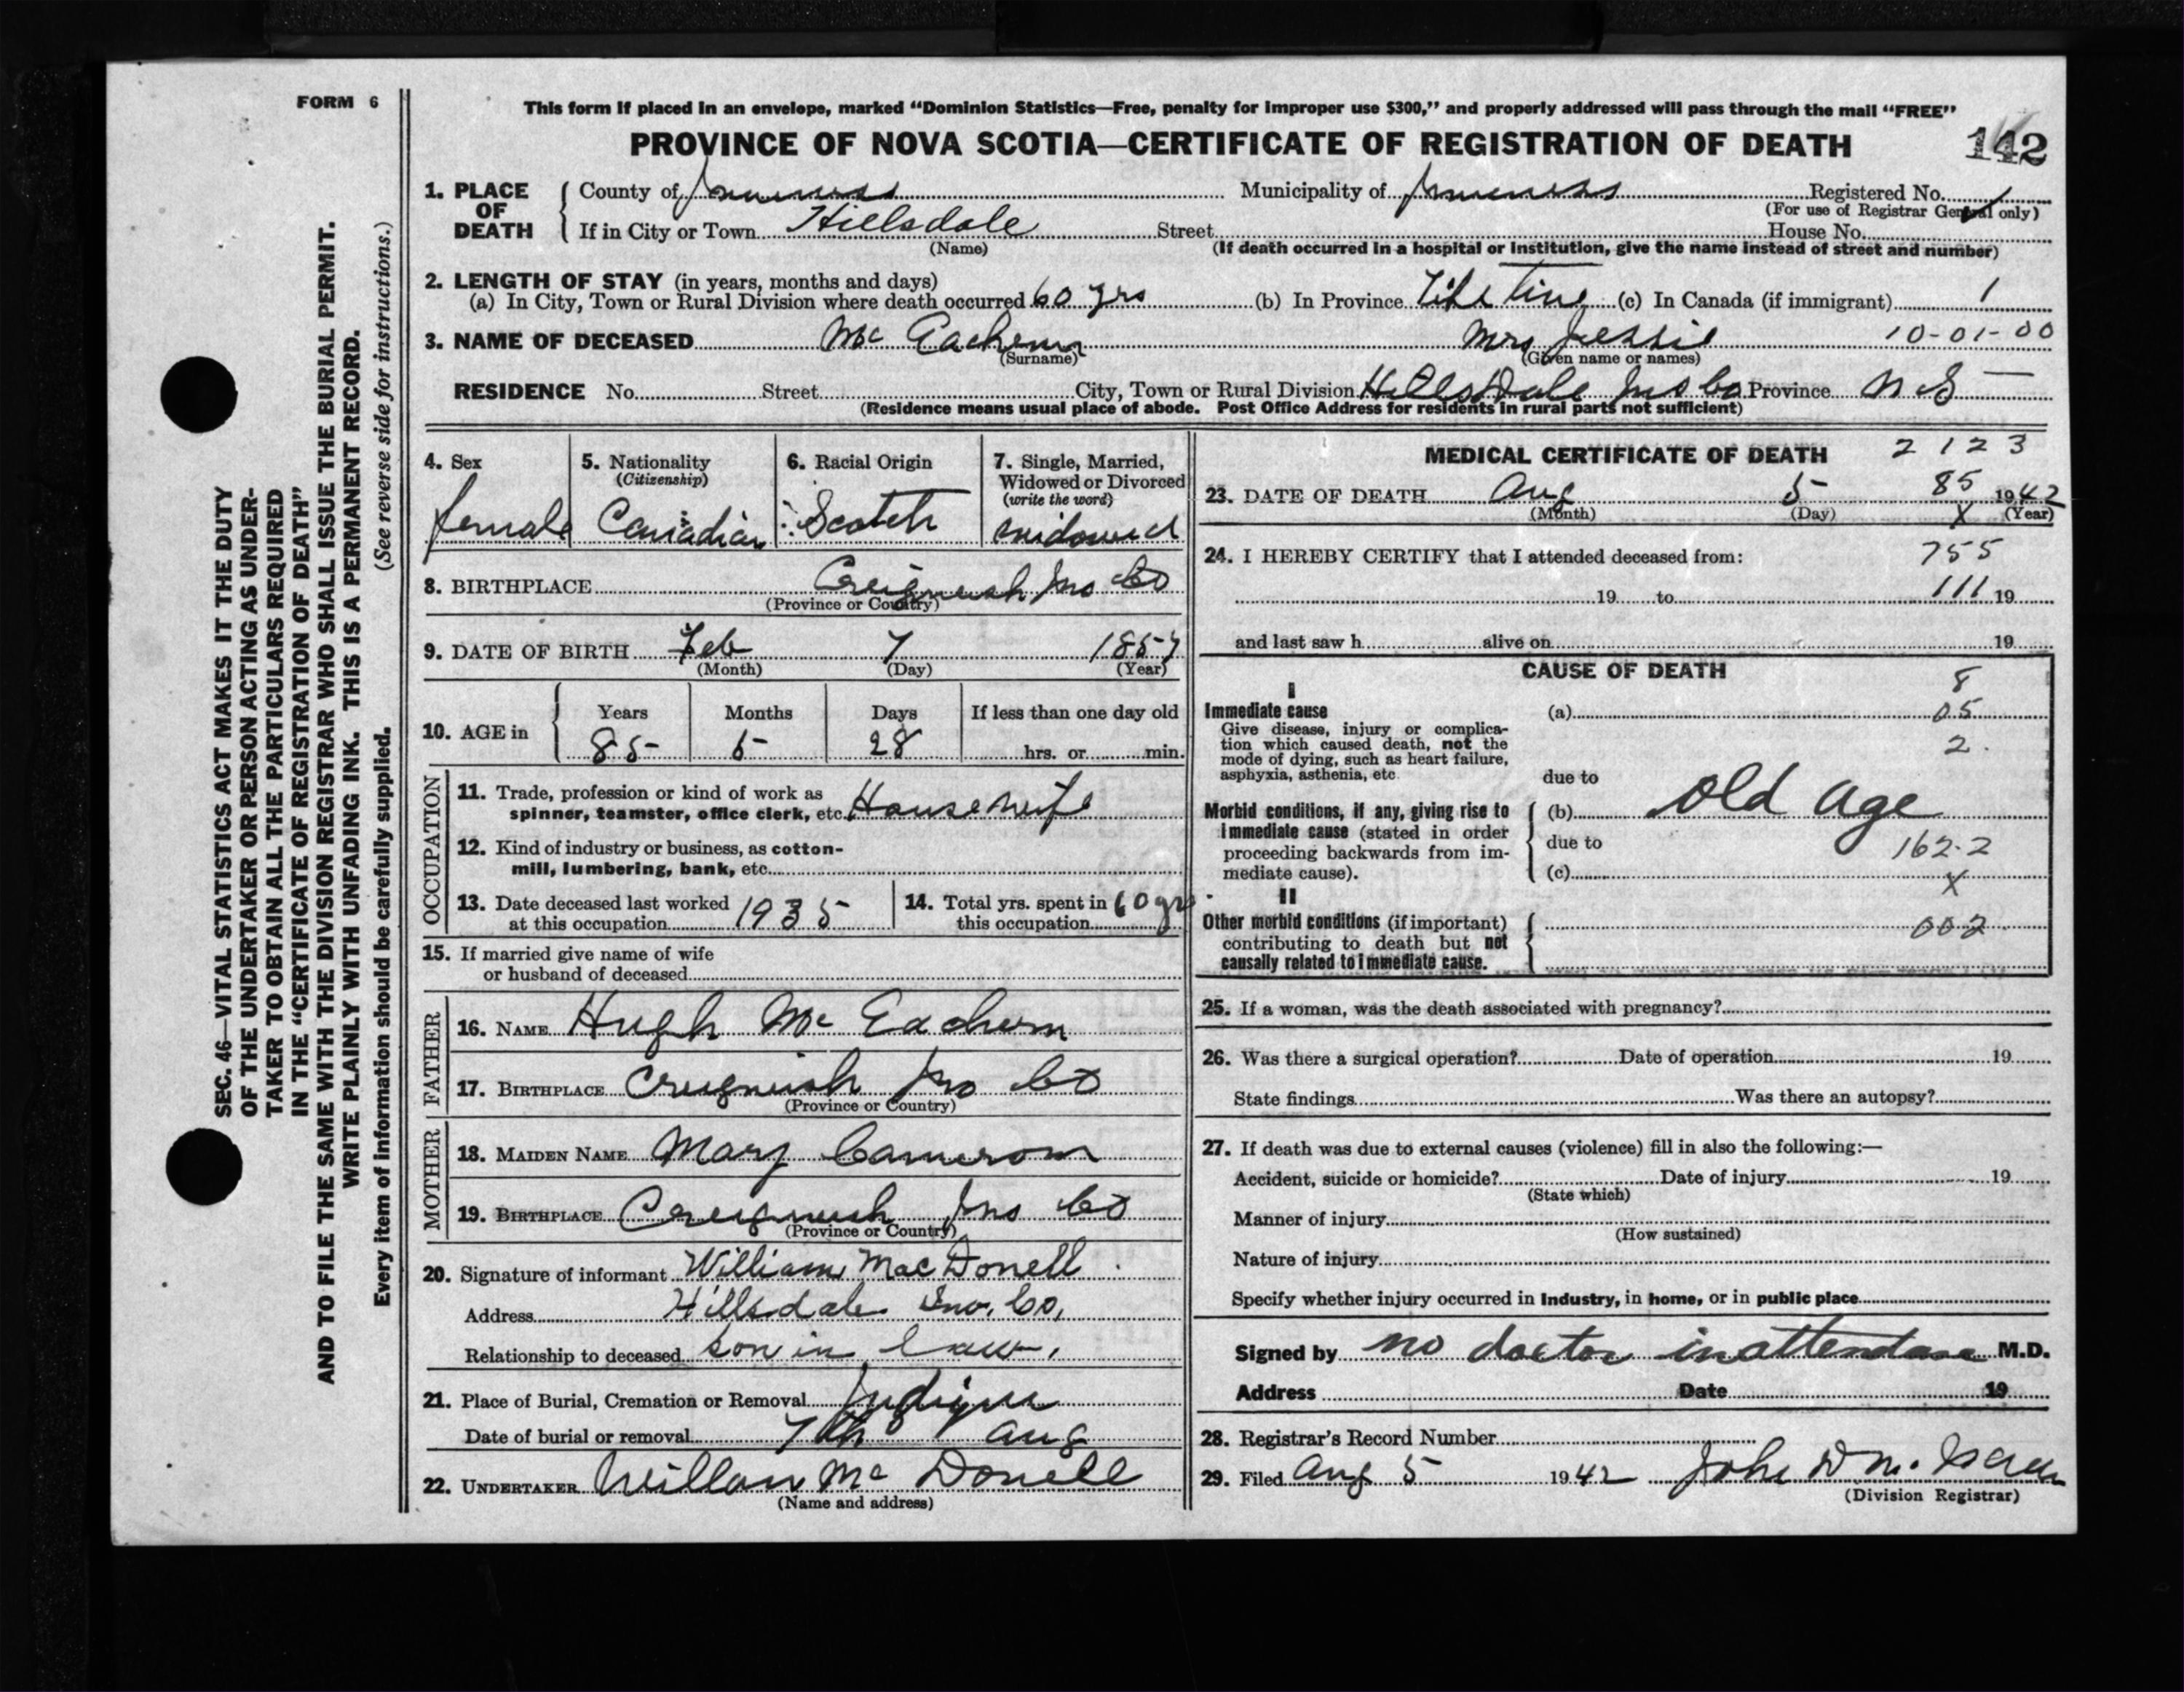 FORM 6
This form if placed in an envelope, marked “Dominion Statistics—Free, penalty for improper use $300,” and properly addressed will pass through the mail “FREE”
PROVINCE OF NOVA SCOTIA—CERTIFICATE OF REGISTRATION OF DEATH
142
SEC. 46—VITAL STATISTICS ACT MAKES IT THE DUTY
OF THE UNDERTAKER OR PERSON ACTING AS UNDER-
TAKER TO OBTAIN ALL THE PARTICULARS REQUIRED
IN THE “CERTIFICATE OF REGISTRATION OF DEATH”
AND TO FILE THE SAME WITH THE DIVISION REGISTRAR WHO SHALL ISSUE THE BURIAL PERMIT.
WRITE PLAINLY WITH UNFADING INK. THIS IS A PERMANENT RECORD.
Every item of information should be carefully supplied. (See reverse side for instructions.)
1. PLACE OF DEATH
County of Inverness Municipality of Inverness Registered No.
(For use of Registrar General only)
If in City or Town Hillsdale Street House No.
(Name) (If death occurred in a hospital or institution, give the name instead of street and number)
2. LENGTH OF STAY (in years, months and days)
(a) In City, Town or Rural Division where death occurred 60 yrs (b) In Province Life Time (c) In Canada (if immigrant) 1
3. NAME OF DECEASED Mc Eachern Mrs Jessie 10-01-00
(Surname) (Given name or names)
RESIDENCE No. Street City, Town or Rural Division HillsDale Inv Co Province N S
(Residence means usual place of abode. Post Office Address for residents in rural parts not sufficient)
4. Sex 5. Nationality 6. Racial Origin 7. Single, Married,
(Citizenship) Widowed or Divorced
(write the word)
female Canadian Scotch widowed
8. BIRTHPLACE Creignish Inv Co
(Province or Country)
9. DATE OF BIRTH Feb 7 1857
(Month) (Day) (Year)
10. AGE in Years Months Days If less than one day old
85 5 28 hrs. or min.
OCCUPATION
11. Trade, profession or kind of work as
spinner, teamster, office clerk, etc. Housewife
12. Kind of industry or business, as cotton-
mill, lumbering, bank, etc.
13. Date deceased last worked at this occupation 1935
14. Total yrs. spent in this occupation 60 yrs
15. If married give name of wife
or husband of deceased
FATHER
16. NAME Hugh Mc Eachern
17. BIRTHPLACE Creignish Inv Co
(Province or Country)
MOTHER
18. MAIDEN NAME Mary Cameron
19. BIRTHPLACE Creignish Inv Co
(Province or Country)
20. Signature of informant William MacDonell
Address Hillsdale Inv. Co,
Relationship to deceased son in law,
21. Place of Burial, Cremation or Removal Judique
Date of burial or removal 7th Aug
22. UNDERTAKER Mc Donell
(Name and address)
MEDICAL CERTIFICATE OF DEATH 2 1 2 3
23. DATE OF DEATH Aug 5 85 1942
(Month) (Day) X (Year)
24. I HEREBY CERTIFY that I attended deceased from: 755
19 to 111 19
and last saw h alive on 19
CAUSE OF DEATH
I 8
Immediate cause (a) 05
Give disease, injury or complica-
tion which caused death, not the 2.
mode of dying, such as heart failure,
asphyxia, asthenia, etc. due to
Morbid conditions, if any, giving rise to (b) Old Age
immediate cause (stated in order
proceeding backwards from im- due to 162-2
mediate cause). (c) X
II
Other morbid conditions (if important) 002
contributing to death but not
causally related to immediate cause.
25. If a woman, was the death associated with pregnancy?
26. Was there a surgical operation? Date of operation 19
State findings Was there an autopsy?
27. If death was due to external causes (violence) fill in also the following:—
Accident, suicide or homicide? Date of injury 19
(State which)
Manner of injury
(How sustained)
Nature of injury
Specify whether injury occurred in industry, in home, or in public place
Signed by no doctor in attendance M.D.
Address Date 19
28. Registrar’s Record Number
29. Filed Aug 5 1942 John D
(Division Registrar)